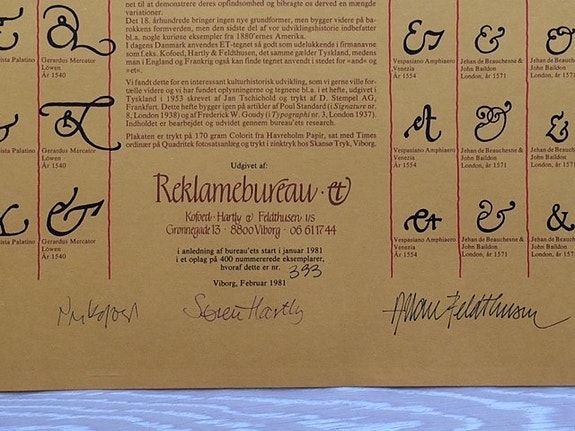 net til at demonstrere deres opfindsomhed og bibragte os derved en mængde
variationer.
Det 18. århundrede bringer ingen nye grundformer, men bygger videre på ba-
rokkens formverden, men den sidste del af vor udviklingshistorie indbefatter
bl.a. nogle kuriøse eksempler fra 1880'ernes Amerika.
I dagens Danmark anvendes ET-tegnet så godt som udelukkende i firmanavne
som f.eks. Kofoed, Hartly & Feldthusen, det samme gælder Tyskland, medens
man i England og Frankrig også kan finde tegnet anvendt i stedet for »and« og
»et«.
Vi fandt dette for en interessant kulturhistorisk udvikling, som vi gerne ville for-
tælle videre og vi har fundet oplysningerne og tegnene bl.a. i et hefte, udgivet i
Tyskland i 1953 skrevet af Jan Tschichold og trykt af D. Stempel AG,
Frankfurt. Dette hefte bygger igen på artikler af Poul Standard (i Signature nr.
8, London 1938) og af Frederic W. Goudy (i Typographi nr. 3, London 1937).
Indholdet er bearbejdet og udvidet gennem bureau'ets research.
Plakaten er trykt på 170 gram Colorit fra Havreholm Papir, sat med Times
ordinær på Quadritek fotosatsanlæg og trykt i zinktryk hos Skansø Tryk, Viborg.
Udgivet af:
Reklamebureau · et
Kofoed · Hartly & Feldthusen I/S
Grønnegade 13 · 8800 Viborg · 06 611744
i anledning af bureau'ets start i januar 1981
i et oplag på 400 nummererede eksemplarer,
hvoraf dette er nr. 393
Viborg, Februar 1981
Søren Hartly
Allan Feldthusen
ista Palatino
Gerardus Mercator
Löwen
År 1540
Vespasiano Amphiareo
Venezia
År 1554
Jehan de Beauchesne &
John Baildon
London, år 1571
Jehan de Beauchesne &
John Baildon
London, år 1571
ista Palatino
Gerardus Mercator
Löwen
År 1540
Vespasiano Amphiareo
Venezia
År 1554
Jehan de Beauchesne &
John Baildon
London, år 1571
Jehan de Beauchesne &
John Baildon
London, år 1571
ista Palatino
Gerardus Mercator
Löwen
År 1540
Vespasiano Amphiareo
Venezia
År 1554
Jehan de Beauchesne &
John Baildon
London, år 1571
Jehan de Beauchesne &
John Baildon
London, år 1571